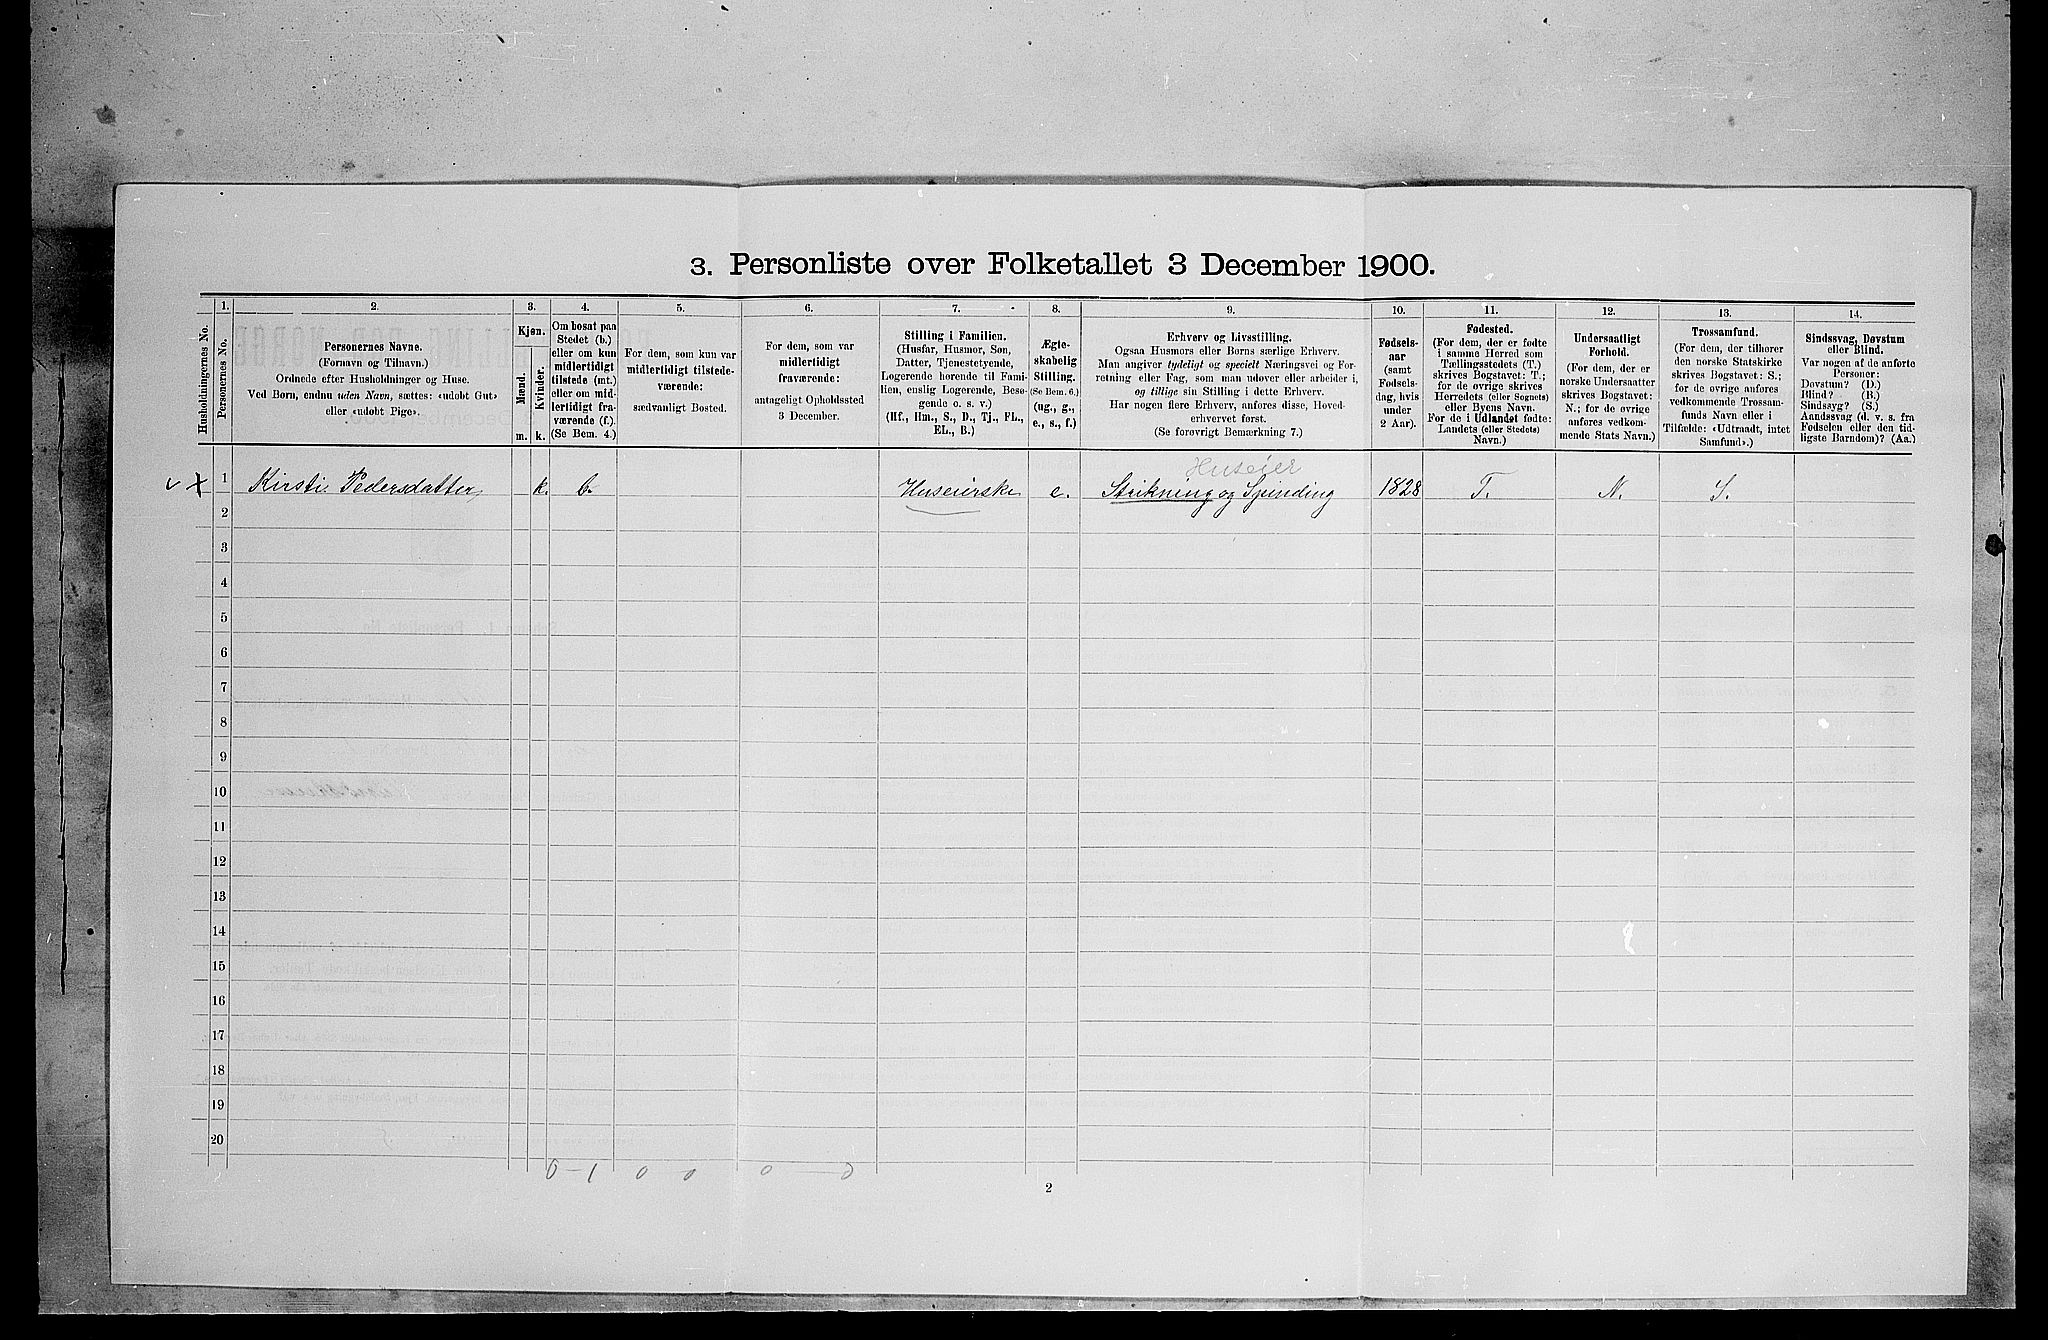 3. Personliste over Folketallet 3 December 1900.
Husholdningernes No.
1.
Personernes No.
2.
Personernes Navne.
(Fornavn og Tilnavn.)
Ordnede efter Husholdninger og Huse.
Ved Børn, endnu uden Navn, sættes: «udøbt Gut»
eller «udøbt Pige».
3.
Kjøn.
Mænd.
Kvinder.
m.
k.
4.
Om bosat paa
Stedet (b.)
eller om kun
midlertidigt
tilstede (mt.)
eller om mid-
lertidigt fra-
værende (f.).
(Se Bem. 4.)
5.
For dem, som kun var
midlertidigt tilstede-
værende:
sædvanligt Bosted.
6.
For dem, som var
midlertidigt
fraværende:
antageligt Opholdssted
3 December.
7.
Stilling i Familien.
(Husfar, Husmor, Søn,
Datter, Tjenestetyende,
Logerende hørende til Fami-
lien, enslig Logerende, Besø-
gende o. s. v.)
(Hf., Hm., S., D., Tj., FL.,
EL., B.)
8.
Ægte-
skabelig
Stilling.
(Se Bem. 6.)
(ug., g.,
e., s., f.)
9.
Erhverv og Livsstilling.
Ogsaa Husmors eller Børns særlige Erhverv.
Man angiver tydeligt og specielt Næringsvei og For-
retning eller Fag, som man udøver eller arbeider i,
og tillige sin Stilling i dette Erhverv.
Har nogen flere Erhverv, anføres disse, Hoved-
erhvervet først.
(Se forøvrigt Bemærkning 7.)
10.
Fødsels-
aar
(samt
Fødsels-
dag, hvis
under
2 Aar).
11.
Fødested.
(For dem, der er fødte
i samme Herred som
Tællingsstedets (T.)
skrives Bogstavet: T.;
for de øvrige skrives
Herredets (eller Sognets)
eller Byens Navn.
For de i Udlandet fødte:
Landets (eller Stedets)
Navn.)
12.
Undersaatligt
Forhold.
(For dem, der er
norske Undersaatter
skrives Bogstavet:
N.; for de øvrige
anføres vedkom-
mende Stats Navn.)
13.
Trossamfund.
(For dem, der tilhører
den norske Statskirke
skrives Bogstavet: S.;
for de øvrige anføres
vedkommende Trossam-
funds Navn eller i
Tilfælde: «Udtraadt, intet
Samfund».)
14.
Sindssvag, Døvstum
eller Blind.
Var nogen af de anførte
Personer:
Døvstum? (D.)
Blind? (B.)
Sindssyg? (S.)
Aandssvag (d. v. s. fra
Fødselen eller den tid-
ligste Barndom)? (Aa.)
Huseier
v x 1 Kirsti Pedersdatter k. b. Huseierske e. Strikning og Spinding 1828 T. N. S.
2
3
4
5
6
7
8
9
10
11
12
13
14
15
16
17
18
19
20
0-1 0 0 0 - 0
2